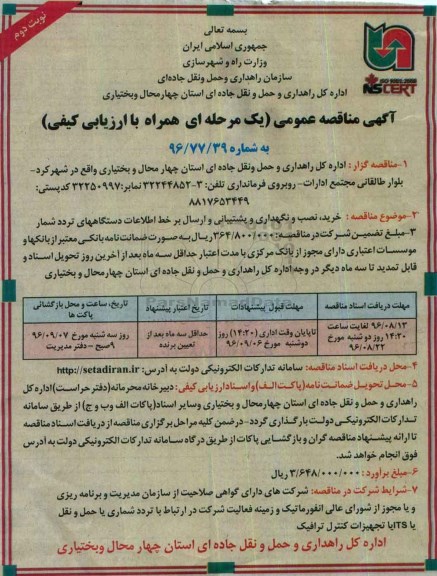 نوبت دوم
بسمه تعالی
جمهوری اسلامی ایران
وزارت راه و شهرسازی
سازمان راهداری وحمل ونقل جاده‌ای
اداره کل راهداری و حمل و نقل جاده ای استان چهارمحال وبختیاری
NSCERT
آگهی مناقصه عمومی (یک مرحله ای همراه با ارزیابی کیفی)
به شماره ۹۶/۷۷/۳۹
۱-مناقصه گزار: اداره کل راهداری و حمل ونقل جاده ای استان چهار محال و بختیاری واقع در شهرکرد-
بلوار طالقانی مجتمع ادارات- روبروی فرمانداری تلفن: ۳-۳۲۲۴۴۸۵۲ نمابر: ۳۲۲۵۰۹۹۷ کدپستی:
۸۸۱۷۶۵۳۴۴۹
۲-موضوع مناقصه: خرید، نصب و نگهداری و پشتیبانی و ارسال بر خط اطلاعات دستگاههای تردد شمار
۳-مبلغ تضمین شرکت در مناقصه: ۳۶۴/۸۰۰/۰۰۰ریال به صورت ضمانت نامه بانکی معتبر از بانکها و
موسسات اعتباری دارای مجوز از بانک مرکزی با مدت اعتبار حداقل سه ماه بعد از آخرین روز تحویل اسناد و
قابل تمدید تا سه ماه دیگر در وجه اداره کل راهداری و حمل و نقل جاده ای استان چهارمحال و بختیاری
مهلت دریافت اسناد مناقصه
مهلت قبول پیشنهادات
تاریخ اعتبار پیشنهاد
تاریخ، ساعت و محل بازگشائی پاکت ها
۹۶/۰۸/۱۳ لغایت ساعت
۱۴:۳۰ روز دو شنبه مورخ
۹۶/۰۸/۲۲
تاپایان وقت اداری (۱۴:۲۰) روز
دوشنبه مورخ ۹۶/۰۹/۰۶
حداقل سه ماه بعد از
تعیین برنده
روز سه شنبه مورخ ۹۶/۰۹/۰۷
۹صبح – دفتر مدیریت
۴-محل دریافت اسناد مناقصه: سامانه تدارکات الکترونیکی دولت به آدرس: http://setadiran.ir
۵-محل تحویل ضمانت نامه (پاکت الف) و اسناد ارزیابی کیفی: دبیرخانه محرمانه (دفتر حراست) اداره کل
راهداری و حمل و نقل جاده ای استان چهارمحال و بختیاری وسایر اسناد (پاکات الف وب و ج) از طریق سامانه
تدارکات الکترونیکی دولت بارگذاری گردد-درضمن کلیه مراحل برگزاری مناقصه از دریافت اسناد مناقصه
تا ارائه پیشنهاد مناقصه گران و بازگشایی پاکات از طریق درگاه سامانه تدارکات الکترونیکی دولت به آدرس
فوق انجام خواهد شد.
۶-مبلغ برآورد: ۳/۶۴۸/۰۰۰/۰۰۰ ریال
۷-شرایط شرکت در مناقصه: شرکت های دارای گواهی صلاحیت از سازمان مدیریت و برنامه ریزی
و یا مجوز از شورای عالی انفورماتیک و زمینه فعالیت شرکت در ارتباط با تردد شماری یا حمل و نقل
یا ITSیا تجهیزات کنترل ترافیک
اداره کل راهداری و حمل و نقل جاده ای استان چهار محال وبختیاری